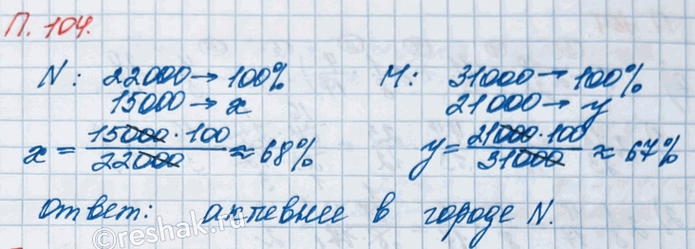 П. 104.
N: 22000 → 100%    М: 31000 → 100%
15000 → x    21000 → y
x = 15000 · 100 / 22000 ≈ 68%    y = 21000 · 100 / 31000 ≈ 67%
Ответ: активнее в городе N.
©reshak.ru